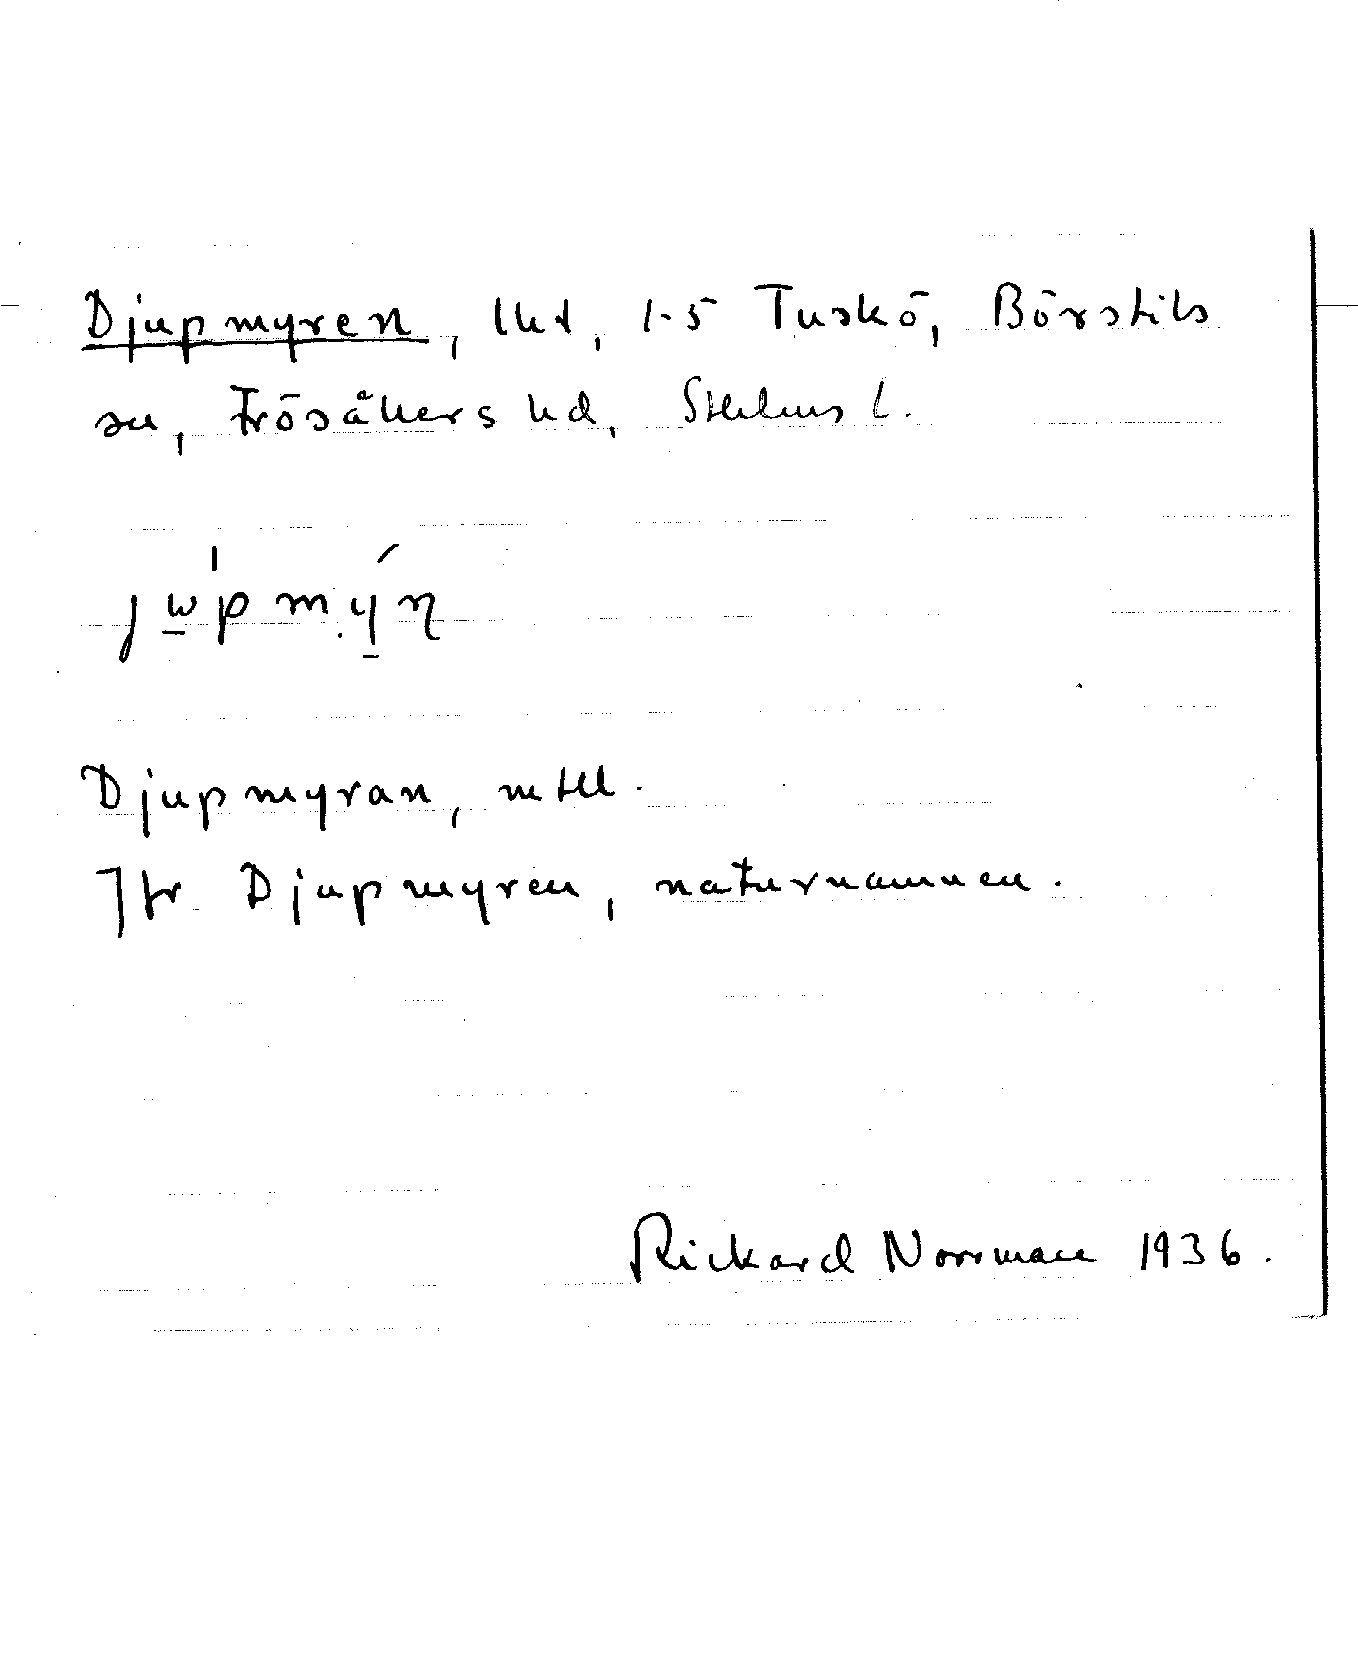 Djupmyren, lht, 1-5 Tuskö, Börstils
sn, Frösåkers hd, Sthlms l.
Djupmyran, mtll.
Jfr Djupmyren, naturnamnen.
Rickard Norrman 1936.